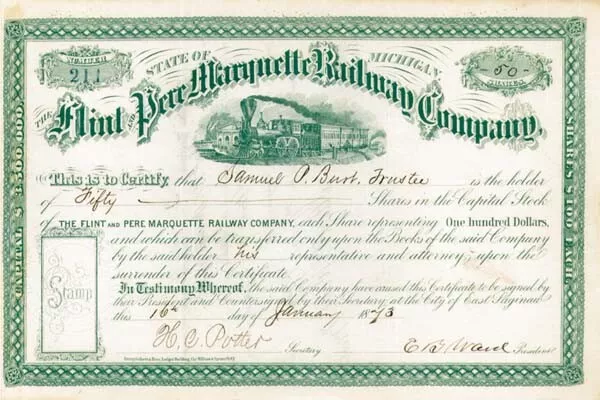 NUMBER
211
STATE OF MICHIGAN
50
SHARES
THE Flint AND Pere Marquette Railway Company,
CAPITAL $3,500,000.
SHARES $100 EACH.
This is to Certify, that Samuel P. Burt, Trustee is the holder
of Fifty Shares in the Capital Stock
of THE FLINT AND PERE MARQUETTE RAILWAY COMPANY, each Share representing One hundred Dollars,
and which can be transferred only upon the Books of the said Company
by the said holder his representative and attorney, upon the
surrender of this Certificate.
In Testimony Whereof, the said Company have caused this Certificate to be signed by
their President and Countersigned by their Secretary at the City of East Saginaw
this 16th day of January 1873
Stamp
H. C. Potter
Secretary
E B Ward
President